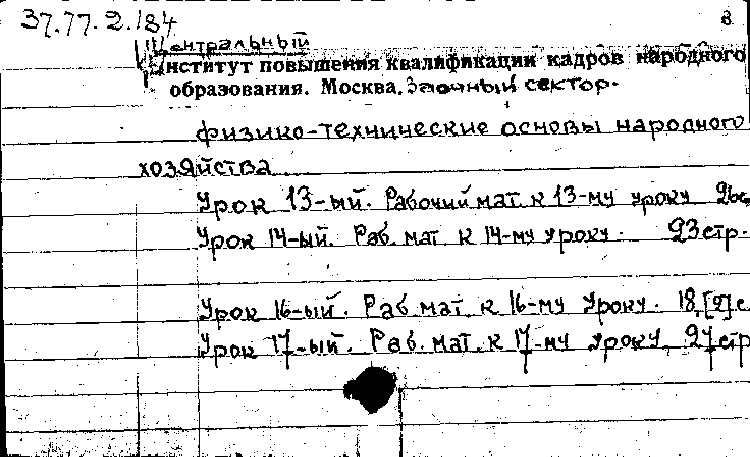 37.77.2.184
Центральный
Институт повышения квалификации кадров народного
образования. Москва. Заочный сектор.
физико-технические основы народного
хозяйства
Урок 13-ый. Рабочий мат. к 13-му уроку 26с.
Урок 14-ый. Раб. мат к 14-му уроку. 23 стр.
Урок 16-ый. Раб. мат. к 16-му уроку. 18, [2] с
Урок 17-ый. Раб. мат. к 17-му уроку. 27 стр